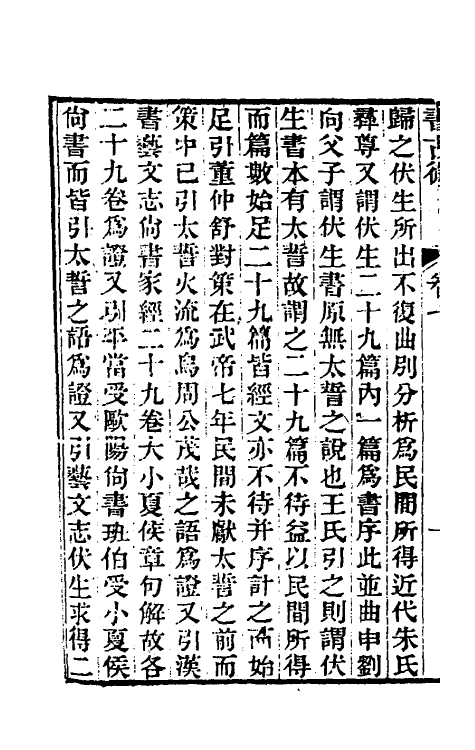 歸之伏生所出不復曲別分析爲民間所得近代朱氏
彝尊又謂伏生二十九篇內一篇爲書序此並曲申劉
向父子謂伏生書原無太誓之說也王氏引之則謂伏
生書本有太誓故謂之二十九篇不待益以民間所得
而篇數始足二十九篇皆經文亦不待并序計之而始
足引董仲舒對策在武帝七年民間未獻太誓之前而
策中已引太誓火流爲烏周公茂哉之語爲證又引漢
書藝文志尙書家經二十九卷大小夏侯章句解故各
二十九卷爲證又引平當受歐陽尙書班伯受小夏侯
尙書而皆引太誓之語爲證又引藝文志伏生求得二